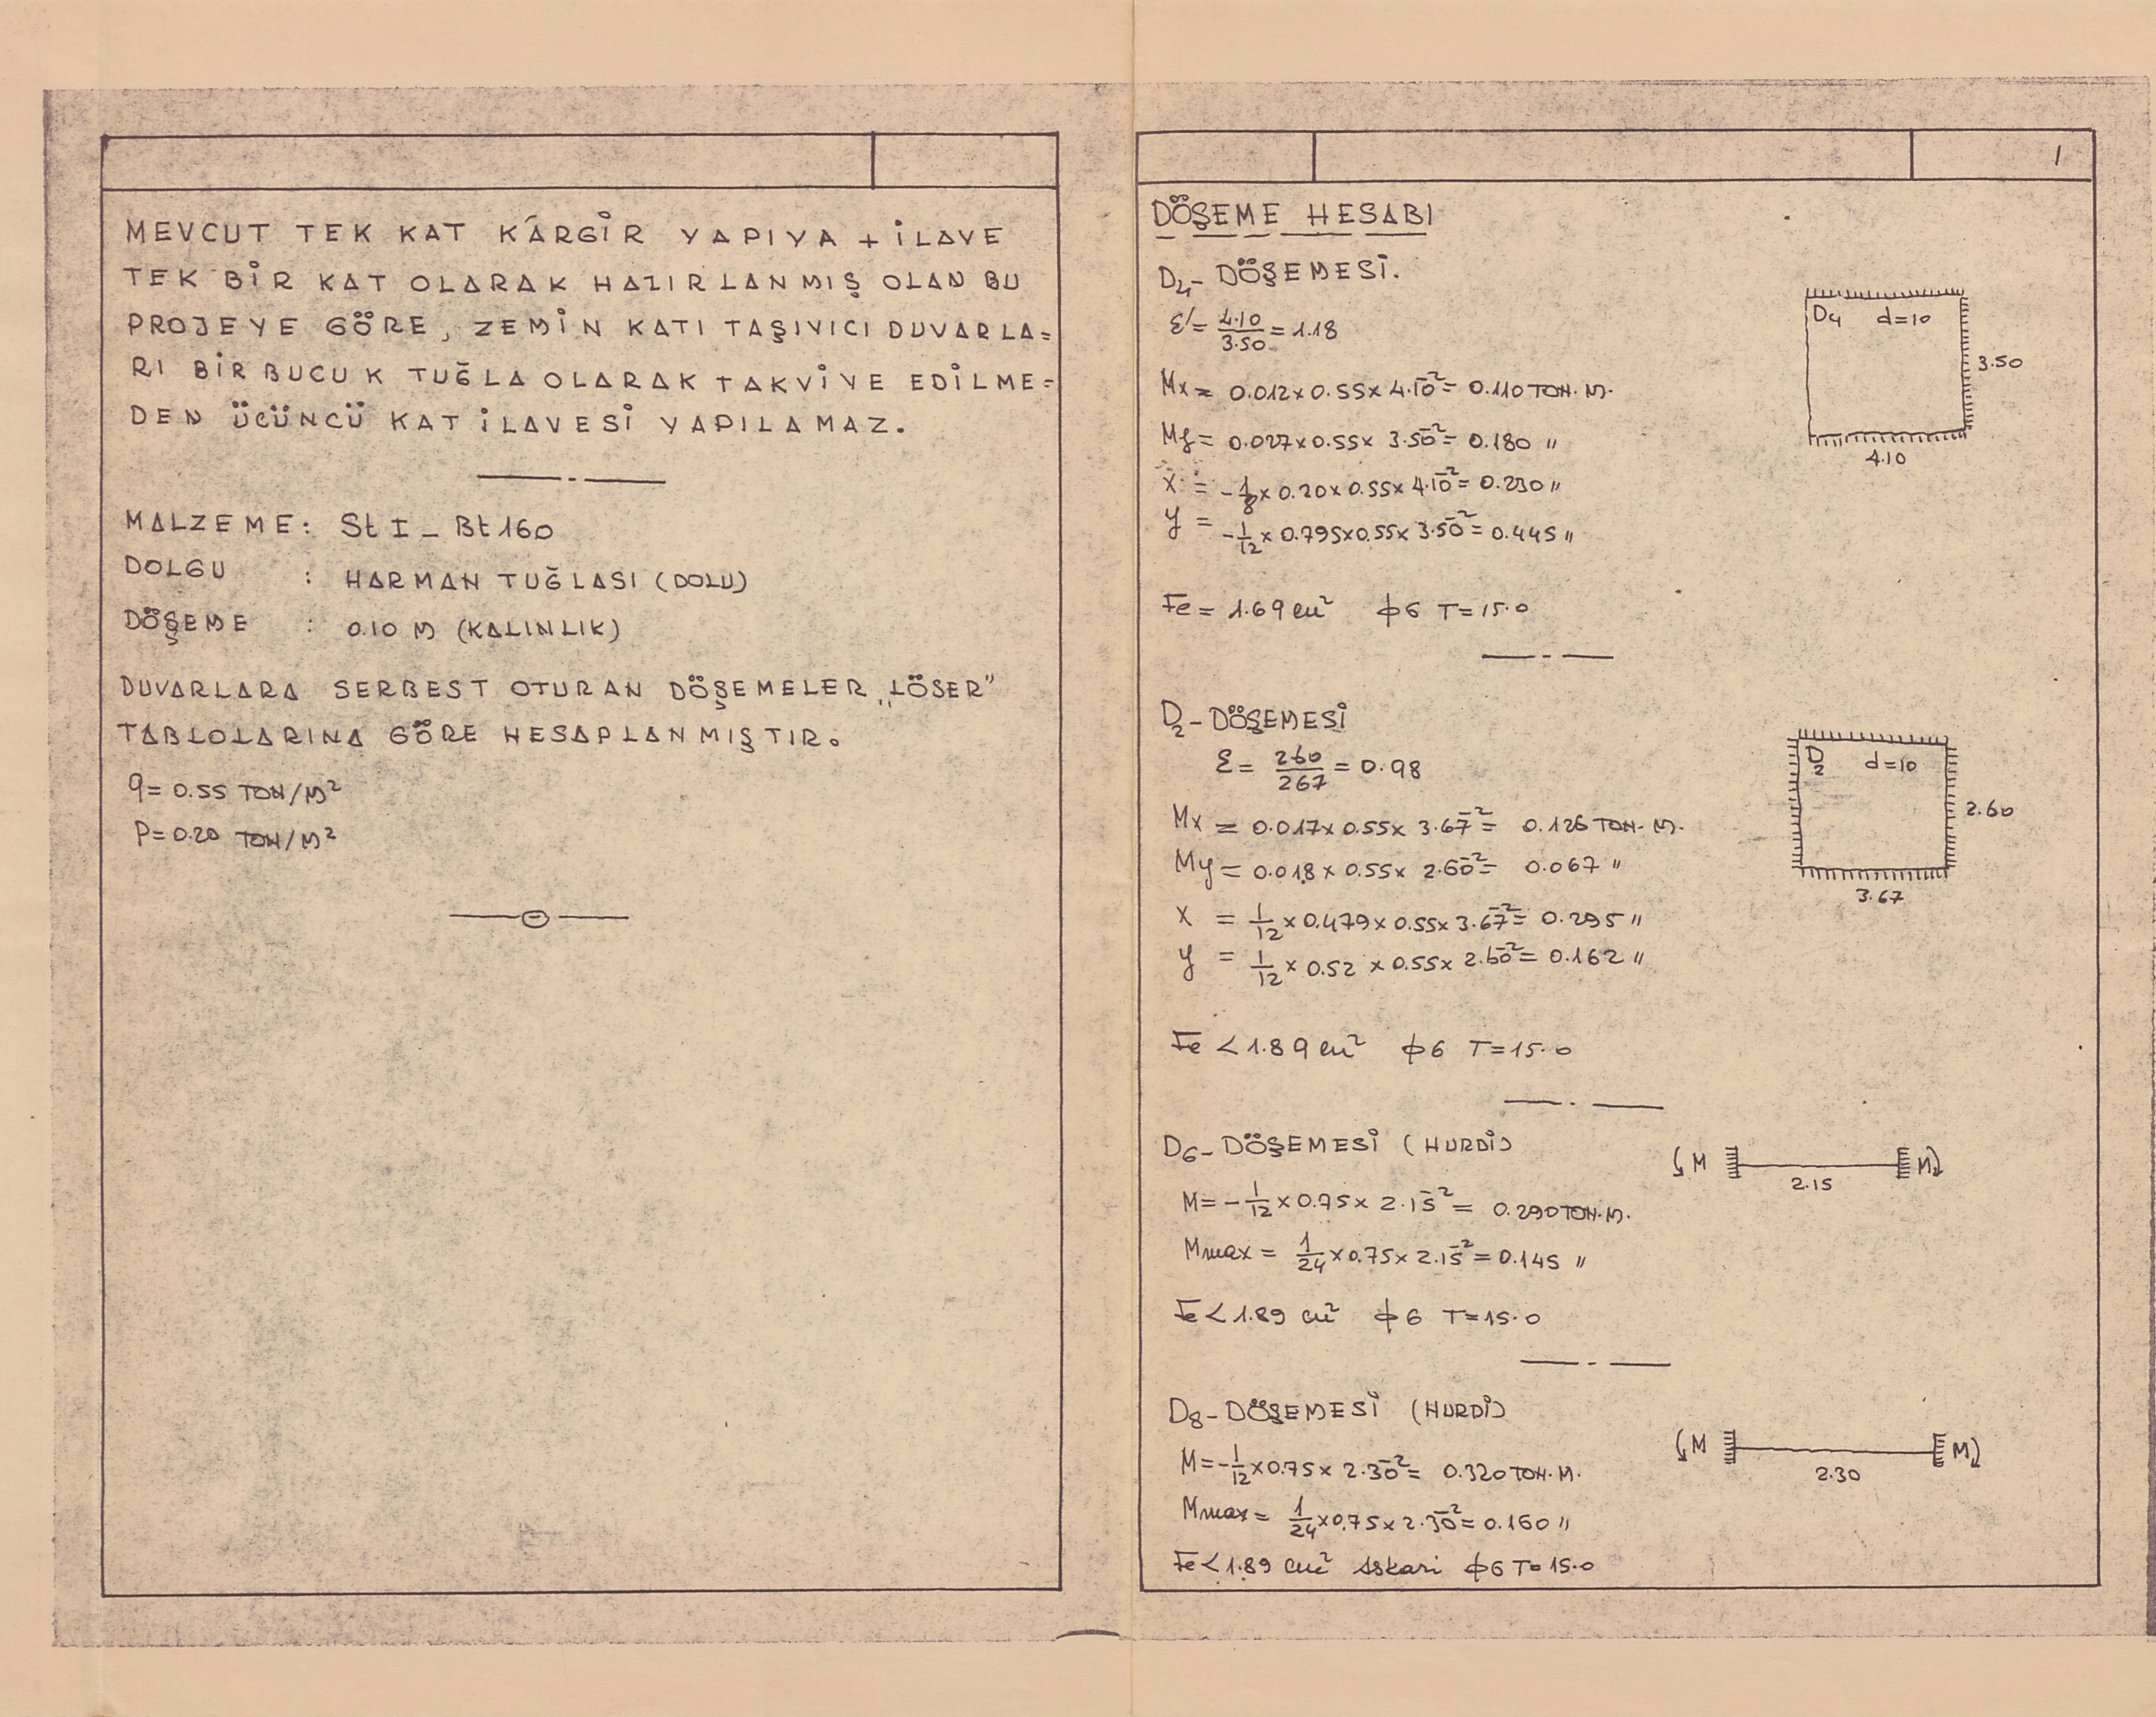 MEVCUT TEK KAT KÂRGİR YAPIYA + İLAVE
TEK BİR KAT OLARAK HAZIRLANMIŞ OLAN BU
PROJEYE GÖRE, ZEMİN KATI TAŞIYICI DUVARLA=
RI BİR BUCUK TUĞLA OLARAK TAKVİYE EDİLME=
DEN ÜCÜNCÜ KAT İLAVESİ YAPILAMAZ.
MALZEME: St I - Bt 160
DOLGU : HARMAN TUĞLASI (DOLU)
DÖŞEME : 0.10 M (KALINLIK)
DUVARLARA SERBEST OTURAN DÖŞEMELER „LÖSER"
TABLOLARINA GÖRE HESAPLANMIŞTIR.
q= 0.55 TON/M²
P= 0.20 TON/M²
1
DÖŞEME HESABI
D4- DÖŞEMESİ.
ε = 4.10/3.50 = 1.18
Mx = 0.012 x 0.55 x 4.10² = 0.110 TON.M.
My = 0.027 x 0.55 x 3.50² = 0.180 "
X = -1/8 x 0.20 x 0.55 x 4.10² = 0.230 "
y = -1/12 x 0.795 x 0.55 x 3.50² = 0.445 "
Fe = 1.69 cm² ϕ6 T=15.0
D4 d=10
3.50
4.10
D2- DÖŞEMESİ
ε = 260/267 = 0.98
Mx = 0.017 x 0.55 x 3.67² = 0.126 TON.M.
My = 0.018 x 0.55 x 2.60² = 0.067 "
X = 1/12 x 0.479 x 0.55 x 3.67² = 0.295 "
y = 1/12 x 0.52 x 0.55 x 2.60² = 0.162 "
Fe < 1.89 cm² ϕ6 T=15.0
D2 d=10
2.60
3.67
D6- DÖŞEMESİ (HURDİ)
M = -1/12 x 0.75 x 2.15² = 0.290 TON.M.
Mmax = 1/24 x 0.75 x 2.15² = 0.145 "
Fe < 1.89 cm² ϕ6 T=15.0
M M
2.15
D8- DÖŞEMESİ (HURDİ)
M = -1/12 x 0.75 x 2.30² = 0.320 TON.M.
Mmax = 1/24 x 0.75 x 2.30² = 0.160 "
Fe < 1.89 cm² Askari ϕ6 T=15.0
M M
2.30